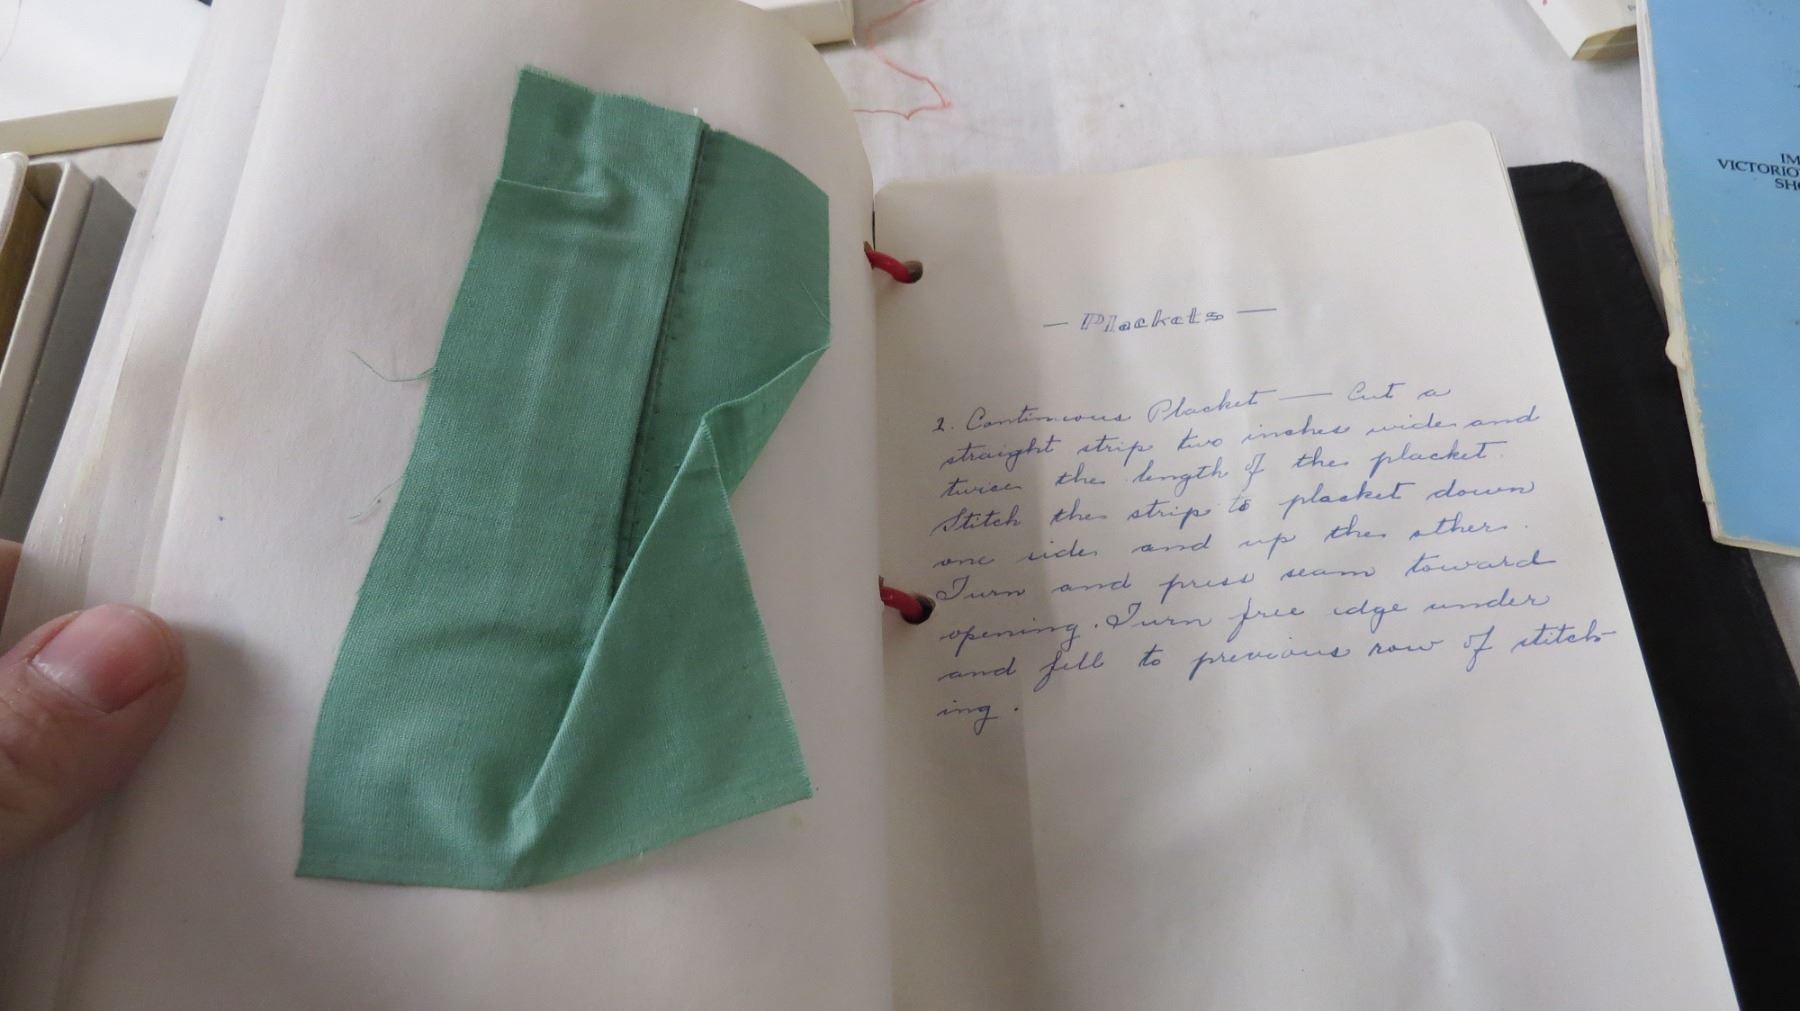 — Plackets —
2. Continuous Placket — Cut a
straight strip two inches wide and
twice the length of the placket.
Stitch the strip to placket down
one side and up the other.
Turn and press seam toward
opening. Turn free edge under
and fell to previous row of stitch-
ing.
IM
VICTORIO
SH